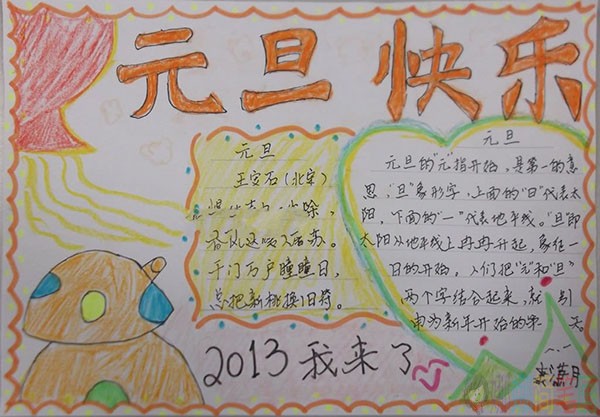 元旦快乐
元旦
王安石(北宋)
除,
送暖入苏。
千门万户瞳瞳日,
总把新桃换旧符。
元旦
元旦的"元"指开始,是第一的意
思,"旦"象形字,上面的"日"代表太
阳,下面的"一"代表地平线。"旦"即
太阳从地平线上冉冉升起,象征一
日的开始,人们把"元"和"旦"
两个字结合起来,就引
申为新年开始的第天。
2013我来了
月